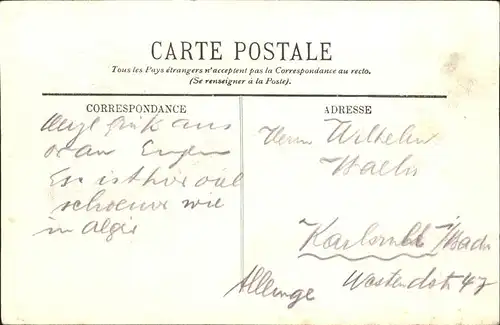 CARTE POSTALE
Tous les Pays étrangers n'acceptent pas la Correspondance au recto.
(Se renseigner à la Poste).
CORRESPONDANCE
aus
oran Eugen
Es ist hier viel
schoener wie
in algie
ADRESSE
Herrn Wilhelm
Karlsruhe i/Bad
Westendst 47
Allemge